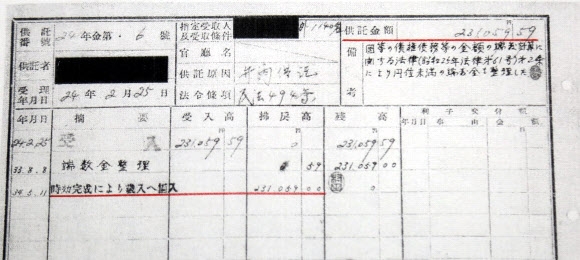 供託番號 24年金第・6號
指定受取人及受取條件 1140番
供託金額 円 231059 59
官廳名
備考 国等の債権債務等の金額の端数計算に関する法律(昭和25年法律第61号)第2条により円位未満の端数金を整理した
供託者
供託原因 弁済供託
受理年月日 24年2月25日
法令條項 民法494条
年月日 摘要 受入高 拂戻高 残高 利子交份額
24.2.25 受入 231059 59 0 231059 59
33.8.8 端数金整理 59 231.059 00
34.5.11 時効完成により歳入へ組入 231.059 00 0